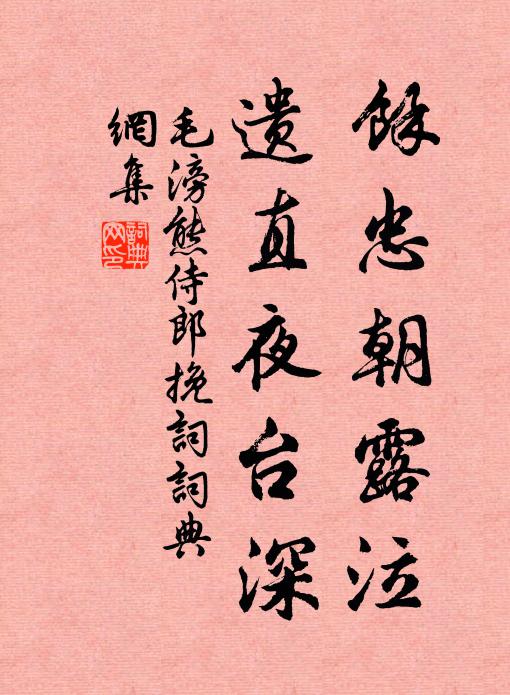 餘忠朝露泣
遗直夜台深
毛滂熊侍郎挽詞詞典
網集
詞典
网印